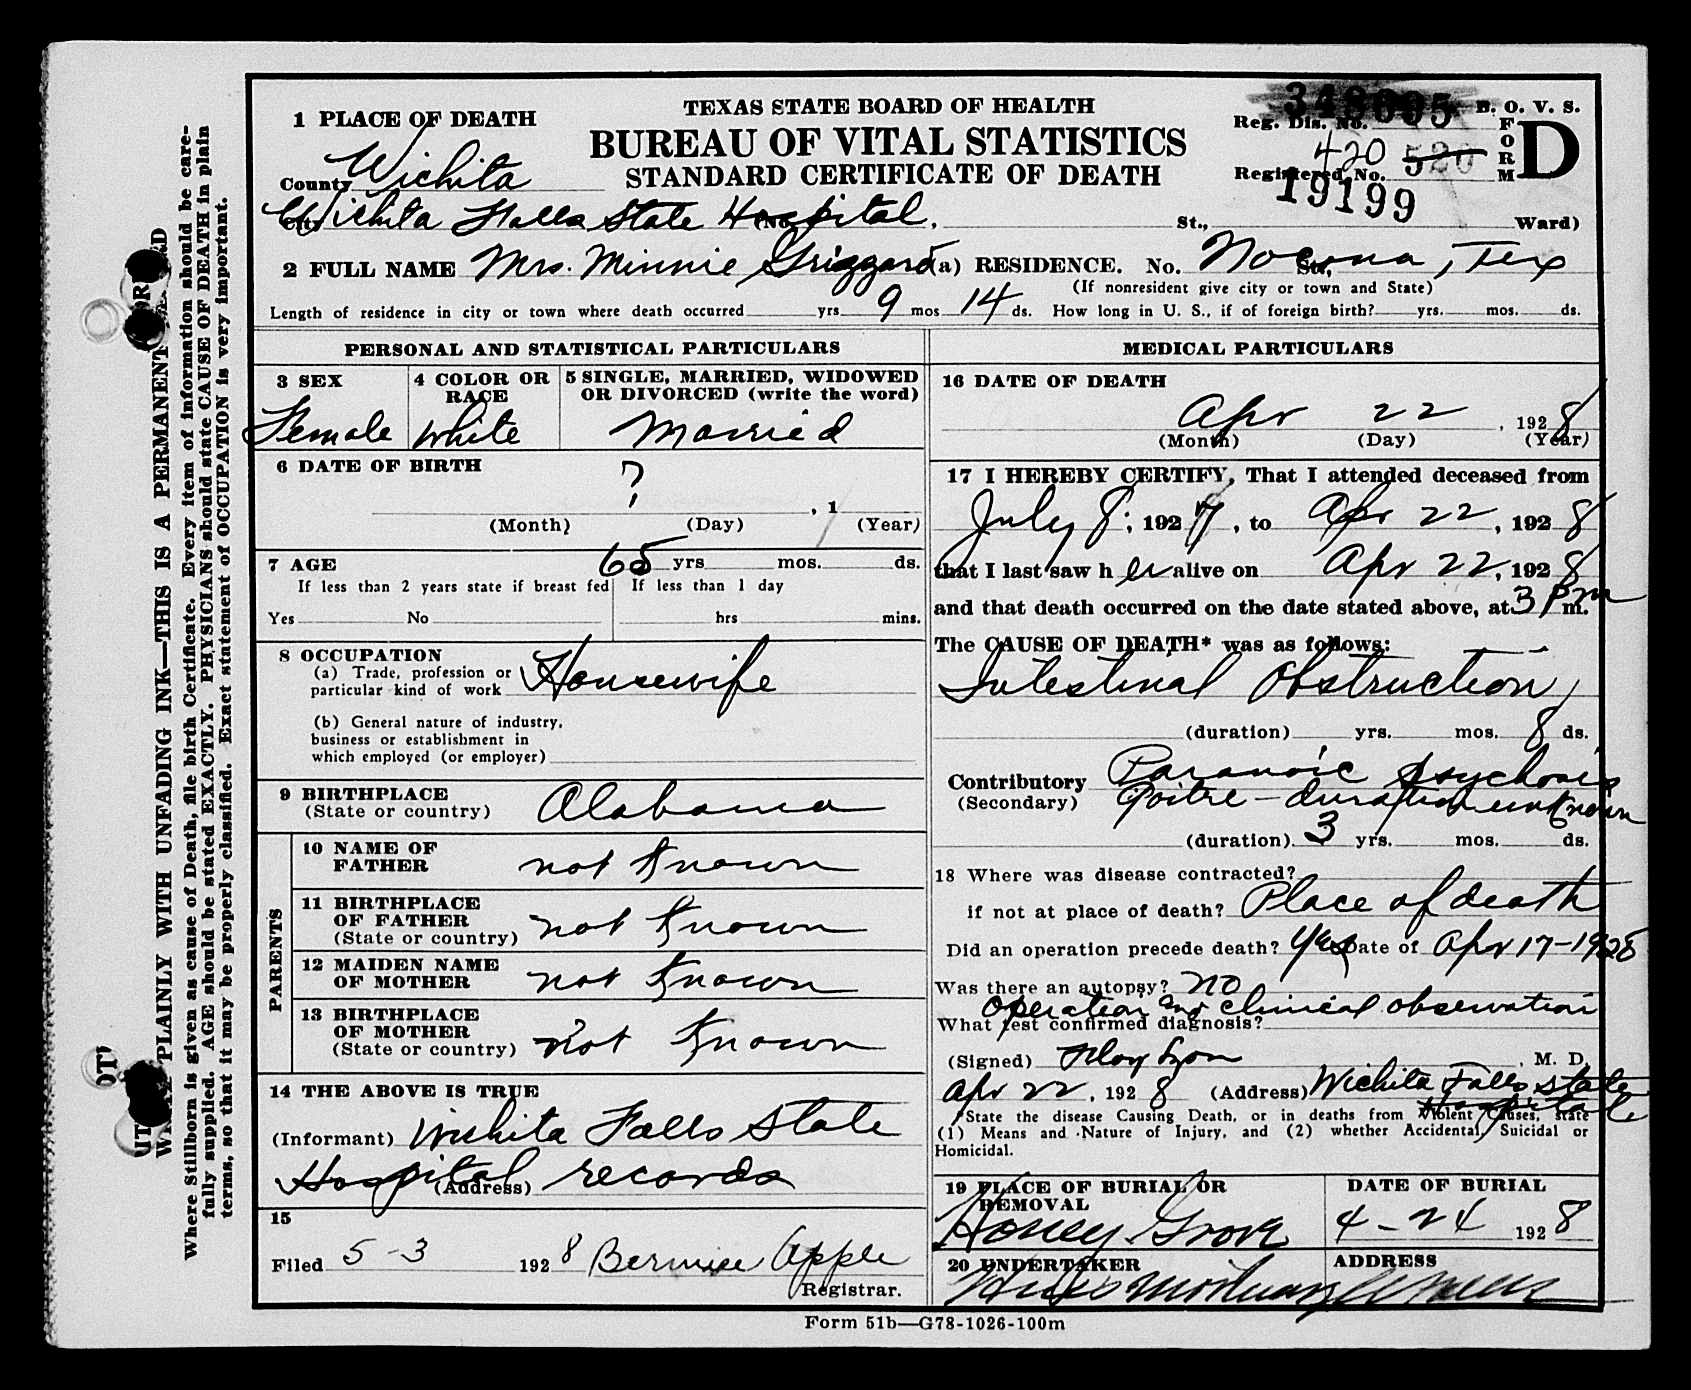 TEXAS STATE BOARD OF HEALTH
BUREAU OF VITAL STATISTICS
STANDARD CERTIFICATE OF DEATH
B. O. V. S.
FORM D
Reg. Dis. No.
420 520
Registered No. 19199
1 PLACE OF DEATH
County Wichita
Wichita Falls State Hospital. St., Ward)
2 FULL NAME Mrs. Minnie Grizzard (a) RESIDENCE. No. Nocona, Tex St.,
(If nonresident give city or town and State)
Length of residence in city or town where death occurred yrs 9 mos 14 ds. How long in U. S., if of foreign birth? yrs. mos. ds.
PERSONAL AND STATISTICAL PARTICULARS
3 SEX
Female
4 COLOR OR RACE
White
5 SINGLE, MARRIED, WIDOWED
OR DIVORCED (write the word)
Married
6 DATE OF BIRTH
? , 1
(Month) (Day) (Year)
7 AGE 65 yrs mos. ds.
If less than 2 years state if breast fed If less than 1 day
Yes No hrs mins.
8 OCCUPATION
(a) Trade, profession or
particular kind of work Housewife
(b) General nature of industry,
business or establishment in
which employed (or employer)
9 BIRTHPLACE
(State or country) Alabama
PARENTS
10 NAME OF
FATHER not Known
11 BIRTHPLACE
OF FATHER
(State or country) not Known
12 MAIDEN NAME
OF MOTHER not Known
13 BIRTHPLACE
OF MOTHER
(State or country) not Known
14 THE ABOVE IS TRUE
(Informant) Wichita Falls State
Hospital records
(Address)
15
Filed 5-3 1928
Apple
Registrar.
MEDICAL PARTICULARS
16 DATE OF DEATH
Apr 22, 1928
(Month) (Day) (Year)
17 I HEREBY CERTIFY, That I attended deceased from
July 8, 1927, to Apr 22, 1928
that I last saw her alive on Apr 22, 1928
and that death occurred on the date stated above, at 3 Pm m.
The CAUSE OF DEATH* was as follows:
Intestinal Obstruction,
(duration) yrs. mos. 8 ds.
Contributory Paranoic Psychosis
(Secondary) Goitre - duration unknown
(duration) 3 yrs. mos. ds.
18 Where was disease contracted?
if not at place of death? Place of death
Did an operation precede death? Yes Date of Apr 17-1928
Was there an autopsy? no
Operation and clinical observation
What test confirmed diagnosis?
(Signed) , M. D.
Apr 22, 1928 (Address) Wichita Falls State
Hospital
*State the disease Causing Death, or in deaths from Violent Causes, state
(1) Means and Nature of Injury, and (2) whether Accidental, Suicidal or
Homicidal.
19 PLACE OF BURIAL OR
REMOVAL
Honey Grove
DATE OF BURIAL
4-24 1928
20 UNDERTAKER
Hines Mortuary
ADDRESS
Form 51b—G78-1026-100m
WRITE PLAINLY WITH UNFADING INK—THIS IS A PERMANENT RECORD
Where Stillborn is given as cause of Death, file birth Certificate. Every item of information should be care-
fully supplied. AGE should be stated EXACTLY. PHYSICIANS should state CAUSE OF DEATH in plain
terms, so that it may be properly classified. Exact statement of OCCUPATION is very important.